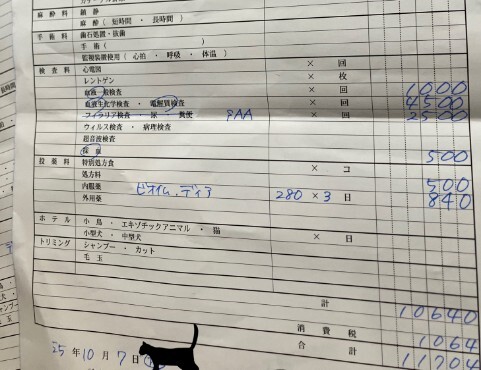 麻酔料 鎮静
麻酔（短時間・長時間）
手術料 歯石処置・抜歯
手術（ ）
監視装置使用（心拍・呼吸・体温）
検査料 心電図 × 回
レントゲン × 枚
血液一般検査 × 回 1000
血液生化学検査・電解質検査 × 回 4500
フィラリア検査・尿・糞便 SAA × 回 2500
ウィルス検査・病理検査
超音波検査
採血 500
投薬料 特別処方食 × コ
処方料 500
内服薬 ビオイムディア 280 × 3 日 840
外用薬
ホテル 小鳥・エキゾチックアニマル・猫
小型犬・中型犬 × 日
トリミング シャンプー・カット
毛玉
計 10640
消費税 1064
合計 11704
25年10月7日